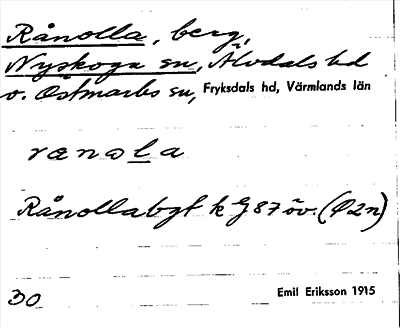 Rånolla, berg,
Nyskoga sn, Älvdals hd
o. Östmarks sn, Fryksdals hd, Värmlands län
rænola
Rånollabgt k G 87 öv. (Ö2n)
30
Emil Eriksson 1915